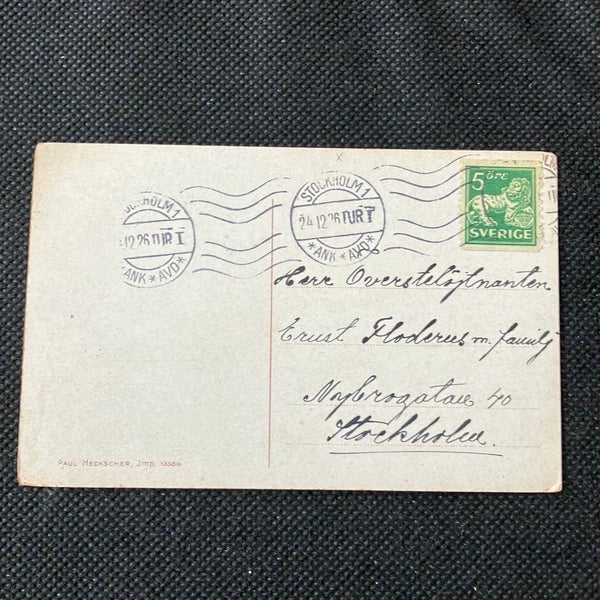 STOCKHOLM 1
24.12.26 TUR I
*ANK*AVD*
OCKHOLM 1
.12.26 TUR I
*ANK*AVD*
5 ÖRE
SVERIGE
Herr Overstelöjtnanten
Ernst Floderus m. familj
Nybrogatan 40
Stockholm.
PAUL HECKSCHER, Jmp.